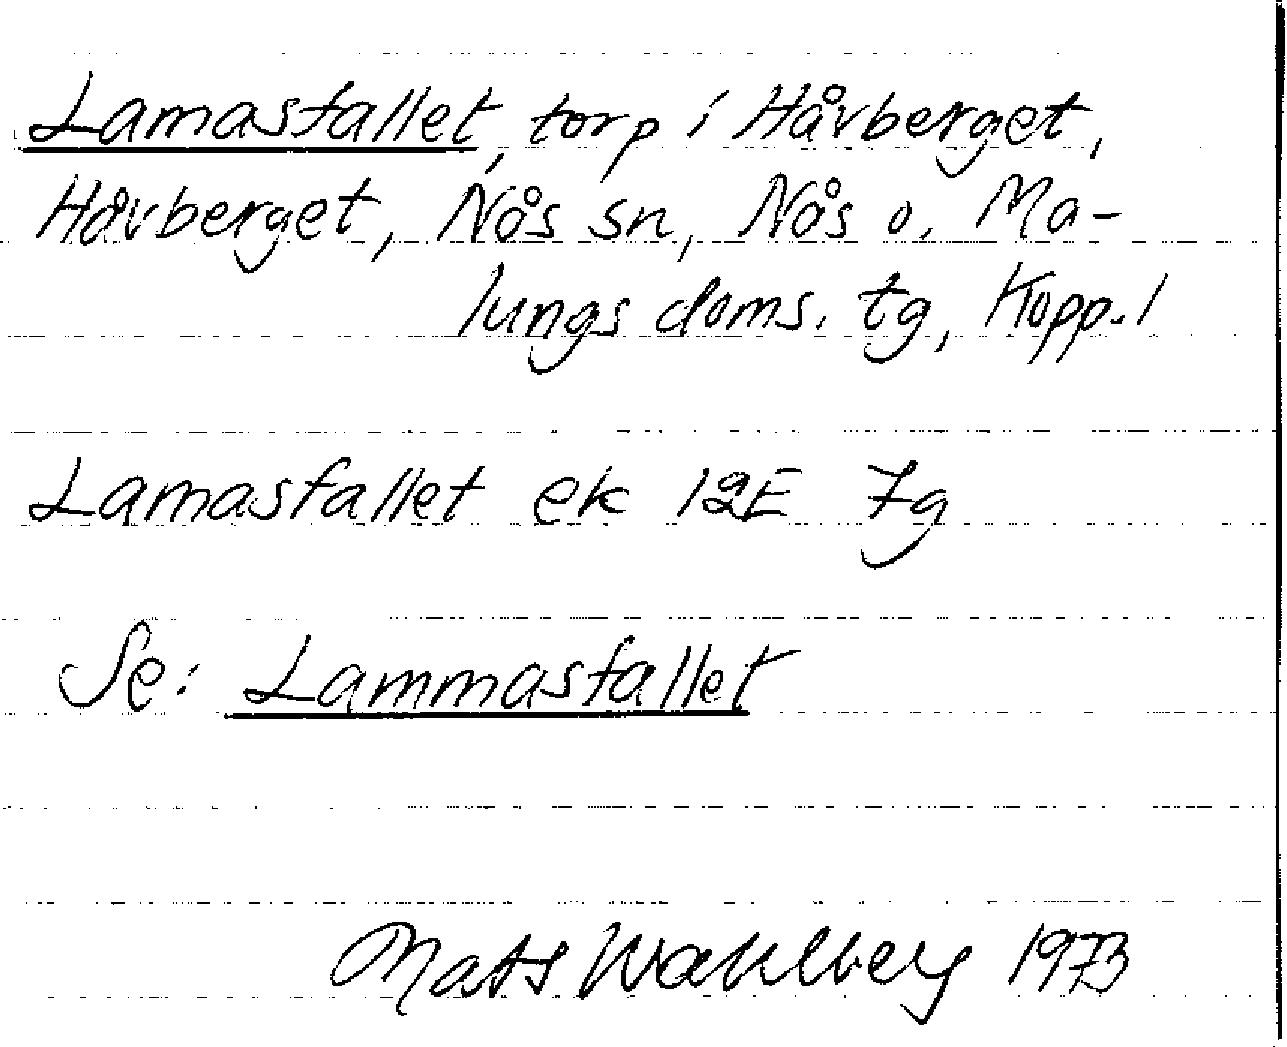 Lamasfallet, torp i Håvberget,
Håvberget, Nås sn, Nås o. Ma-
lungs doms. tg, Kopp. l
Lamasfallet ek 12E 7g
Se: Lammasfallet
Mats Wahlberg 1973